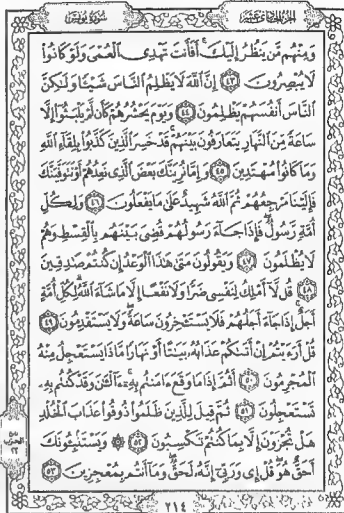 سورة يونس
الجزء الحادي عشر
وَمِنْهُم مَّن يَنظُرُ إِلَيْكَ أَفَأَنتَ تَهْدِي الْعُمْيَ وَلَوْ كَانُوا
لَا يُبْصِرُونَ ٤٣ إِنَّ اللَّهَ لَا يَظْلِمُ النَّاسَ شَيْئًا وَلَٰكِنَّ
النَّاسَ أَنفُسَهُمْ يَظْلِمُونَ ٤٤ وَيَوْمَ يَحْشُرُهُمْ كَأَن لَّمْ يَلْبَثُوا إِلَّا
سَاعَةً مِّنَ النَّهَارِ يَتَعَارَفُونَ بَيْنَهُمْ قَدْ خَسِرَ الَّذِينَ كَذَّبُوا بِلِقَاءِ اللَّهِ
وَمَا كَانُوا مُهْتَدِينَ ٤٥ وَإِمَّا نُرِيَنَّكَ بَعْضَ الَّذِي نَعِدُهُمْ أَوْ نَتَوَفَّيَنَّكَ
فَإِلَيْنَا مَرْجِعُهُمْ ثُمَّ اللَّهُ شَهِيدٌ عَلَىٰ مَا يَفْعَلُونَ ٤٦ وَلِكُلِّ
أُمَّةٍ رَّسُولٌ فَإِذَا جَاءَ رَسُولُهُمْ قُضِيَ بَيْنَهُم بِالْقِسْطِ وَهُمْ
لَا يُظْلَمُونَ ٤٧ وَيَقُولُونَ مَتَىٰ هَٰذَا الْوَعْدُ إِن كُنتُمْ صَادِقِينَ
٤٨ قُل لَّا أَمْلِكُ لِنَفْسِي ضَرًّا وَلَا نَفْعًا إِلَّا مَا شَاءَ اللَّهُ لِكُلِّ أُمَّةٍ
أَجَلٌ إِذَا جَاءَ أَجَلُهُمْ فَلَا يَسْتَأْخِرُونَ سَاعَةً وَلَا يَسْتَقْدِمُونَ ٤٩
قُلْ أَرَءَيْتُمْ إِنْ أَتَىٰكُمْ عَذَابُهُ بَيَاتًا أَوْ نَهَارًا مَّاذَا يَسْتَعْجِلُ مِنْهُ
الْمُجْرِمُونَ ٥٠ أَثُمَّ إِذَا مَا وَقَعَ ءَامَنتُم بِهِ ءَآلْـَٰنَ وَقَدْ كُنتُم بِهِ
تَسْتَعْجِلُونَ ٥١ ثُمَّ قِيلَ لِلَّذِينَ ظَلَمُوا ذُوقُوا عَذَابَ الْخُلْدِ
هَلْ تُجْزَوْنَ إِلَّا بِمَا كُنتُمْ تَكْسِبُونَ ٥٢ ۞ وَيَسْتَنبِـُٔونَكَ
أَحَقٌّ هُوَ قُلْ إِي وَرَبِّي إِنَّهُ لَحَقٌّ وَمَا أَنتُم بِمُعْجِزِينَ ٥٣
الحزب
٢٢
٢١٤